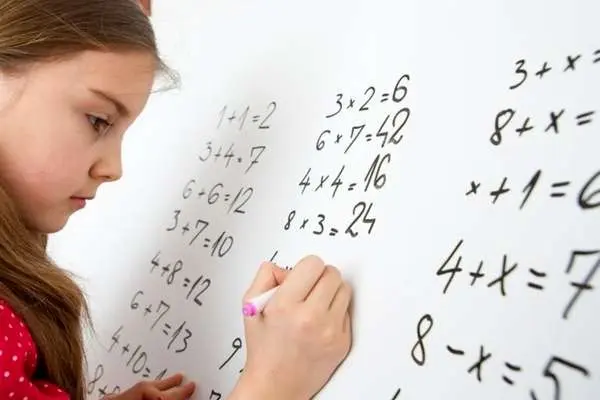 1+1=2
3+4=7
6+6=12
3+7=10
4+8=12
6+7=13
4+10=
8+
3×2=6
6×7=42
4×4=16
8×3=24
9
3+x=
8+x=
x+1=6
4+x=7
8-x=5